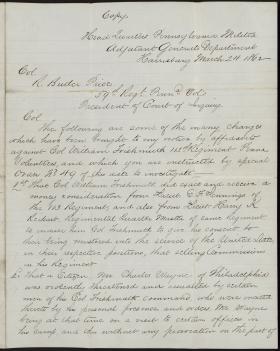 Copy.
Head Quarters Pennsylvania Militia
Adjutant General's Department
Harrisburg March 24 1862
Col
R. Butler Price
59th Regt Penna Vol
President of Court of Inquiry
Col
The following are some of the many charges
which have been brought to my notice by affidavits
against Col William Frishmuth 113th Regiment Penna
Volunteers, and which you are instructed by special
Order No 49 of this date to investigate
1st That Col William Frishmuth did exact and receive a
money consideration from Lieut E. F. Jennings of
the 113 Regiment, and also from Lieut Harry A.
Regimental Quarter Master of same Regiment
to induce him Col Frishmuth to give his consent to
their being mustered into the service of the United States
in their respective positions, thus selling Commissions
in his Regiment.
That a Citizen Mr Charles Wayne of Philadelphia
was violently threatened and assaulted by certain
men of Col Frishmuth command, who were incited
thereto by his personal presence and orders Mr Wayne
being at that time on a visit to certain officers in
his Camp and this without any provocation on the part of